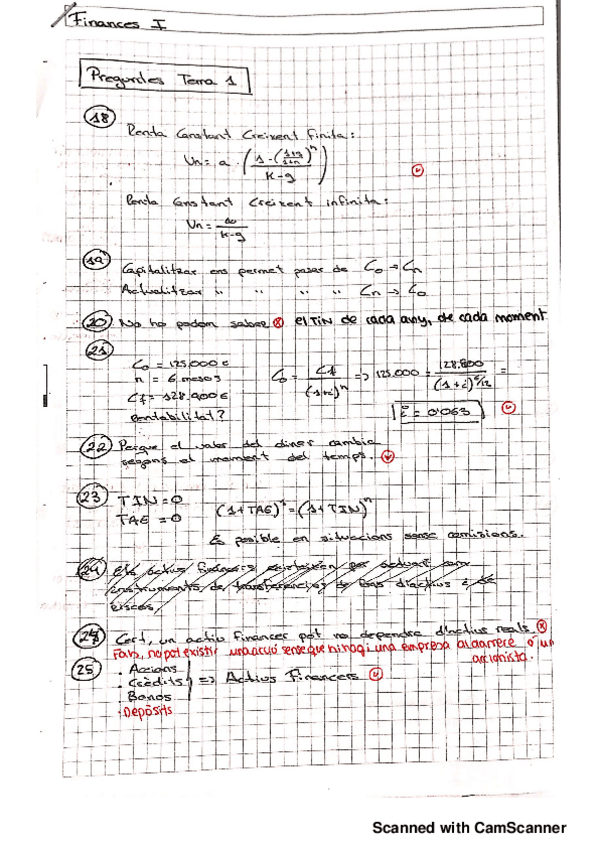 Finances I
Preguntes Tema 1
18
Renta Constant Creixent Finita:
Vn = a · (1 - (1+g/1+k)^n / k-g)
Renta Constant Creixent infinita:
Vn = a / k-g
19
Capitalitzar ens permet pasar de C0 → Cn
Actualitzar " " " " Cn → C0
20 No ho podem saber el TIN de cada any, de cada moment
21
C0 = 125.000 €
n = 6 mesos
Cf = 128.900 €
Rentabilitat?
C0 = Cf / (1+i)^n => 125.000 = 128.900 / (1+i)^6/12 =
i = 0'063
22 Perque el valor del diner cambia
segons el moment del temps.
23 TIN = 0
TAE = 0
(1+TAE)^1 = (1+TIN)^n
És posible en situacions sense comisions.
24
riscos
24 Cert, un actiu financer pot no dependre d'actius reals
Fals, no pot existir una acció sense que hi hagi una empresa al darrere o un
accionista.
25
· Accions
· Crèdits => Actius Financers
· Bonos
· Depòsits
Scanned with CamScanner